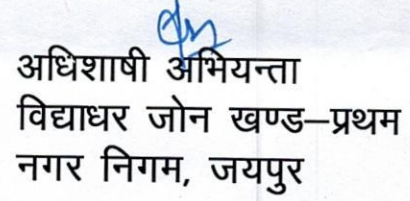 अधिशाषी अभियन्ता
विद्याधर जोन खण्ड–प्रथम
नगर निगम, जयपुर